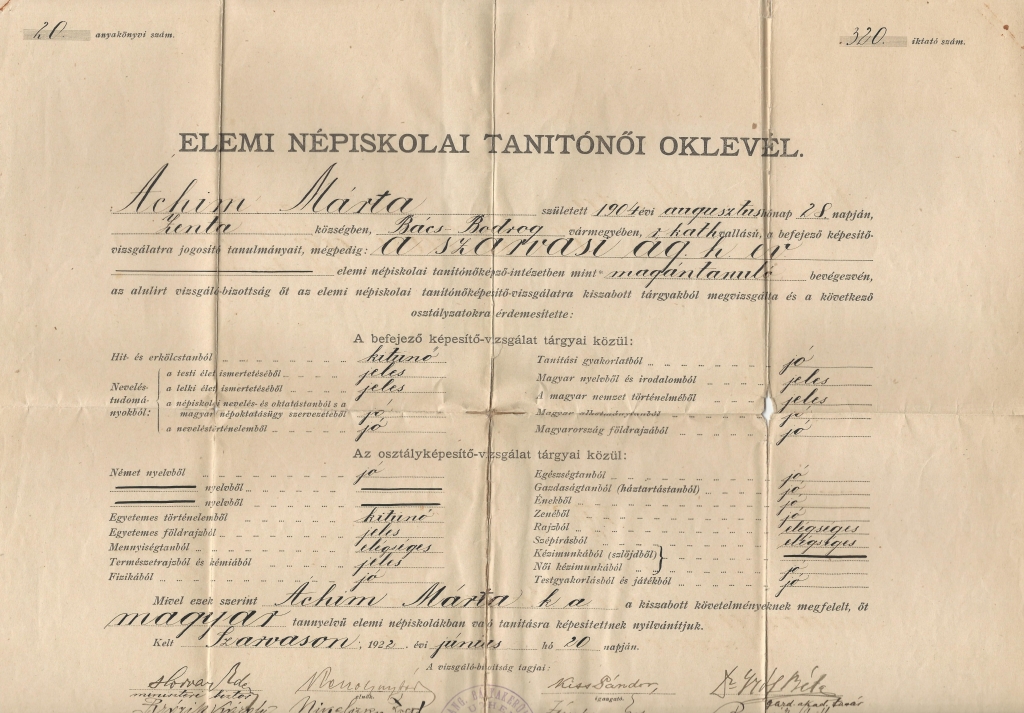 20. anyakönyvi szám. 320. iktató szám.
ELEMI NÉPISKOLAI TANITÓNŐI OKLEVÉL.
Áchim Márta született 1904 évi augusztus hónap 28. napján,
Zenta községben, Bács-Bodrog vármegyében, r. kath vallásu, a befejező képesitő-
vizsgálatra jogositó tanulmányait, mégpedig: a szarvasi ág. h. ev
elemi népiskolai tanitónőképző-intézetben mint magántanuló bevégezvén,
az alulirt vizsgáló-bizottság őt az elemi népiskolai tanitónőképesitő-vizsgálatra kiszabott tárgyakból megvizsgálta és a következő
osztályzatokra érdemesitette:
A befejező képesitő-vizsgálat tárgyai közül:
Hit- és erkölcstanból kitünő
Nevelés-tudomá-nyokból:
a testi élet ismertetéséből jeles
a lelki élet ismertetéséből jeles
a népiskolai nevelés- és oktatástanból s a
magyar népoktatásügy szervezetéből jó
a neveléstörténelemből jó
Tanitási gyakorlatból jó
Magyar nyelvből és irodalomból jeles
A magyar nemzet történelméből jeles
Magyar alkotmánytanból jó
Magyarország földrajzából jó
Az osztályképesitő-vizsgálat tárgyai közül:
Német nyelvből jó
nyelvből
nyelvből
Egyetemes történelemből kitünő
Egyetemes földrajzból jeles
Mennyiségtanból elégséges
Természetrajzból és kémiából jeles
Fizikából jó
Egészségtanból jó
Gazdaságtanból (háztartástanból) jó
Énekből jó
Zenéből jó
Rajzból elégséges
Szépirásból elégséges
Kézimunkából (szlöjdből)
Női kézimunkából jó
Testgyakorlásból és játékból jó
Mivel ezek szerint Áchim Márta k a a kiszabott követelményeknek megfelelt, őt
magyar tannyelvű elemi népiskolákban való tanitásra képesitettnek nyilvánitjuk.
Kelt Szarvason, 1922. évi június hó 20 napján.
A vizsgáló-bizottság tagjai:
Kiss Sándor, Dr Gróf Béla
igazgató.